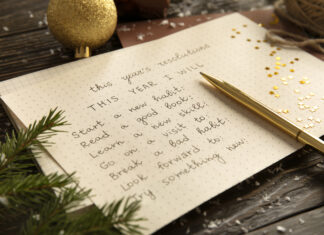 this year's resolutions
THIS YEAR I WILL
Start a new habit:
Read a good book:
Learn a new skill:
Go on a visit to:
Break a bad habit:
Look forward to:
Try something new: